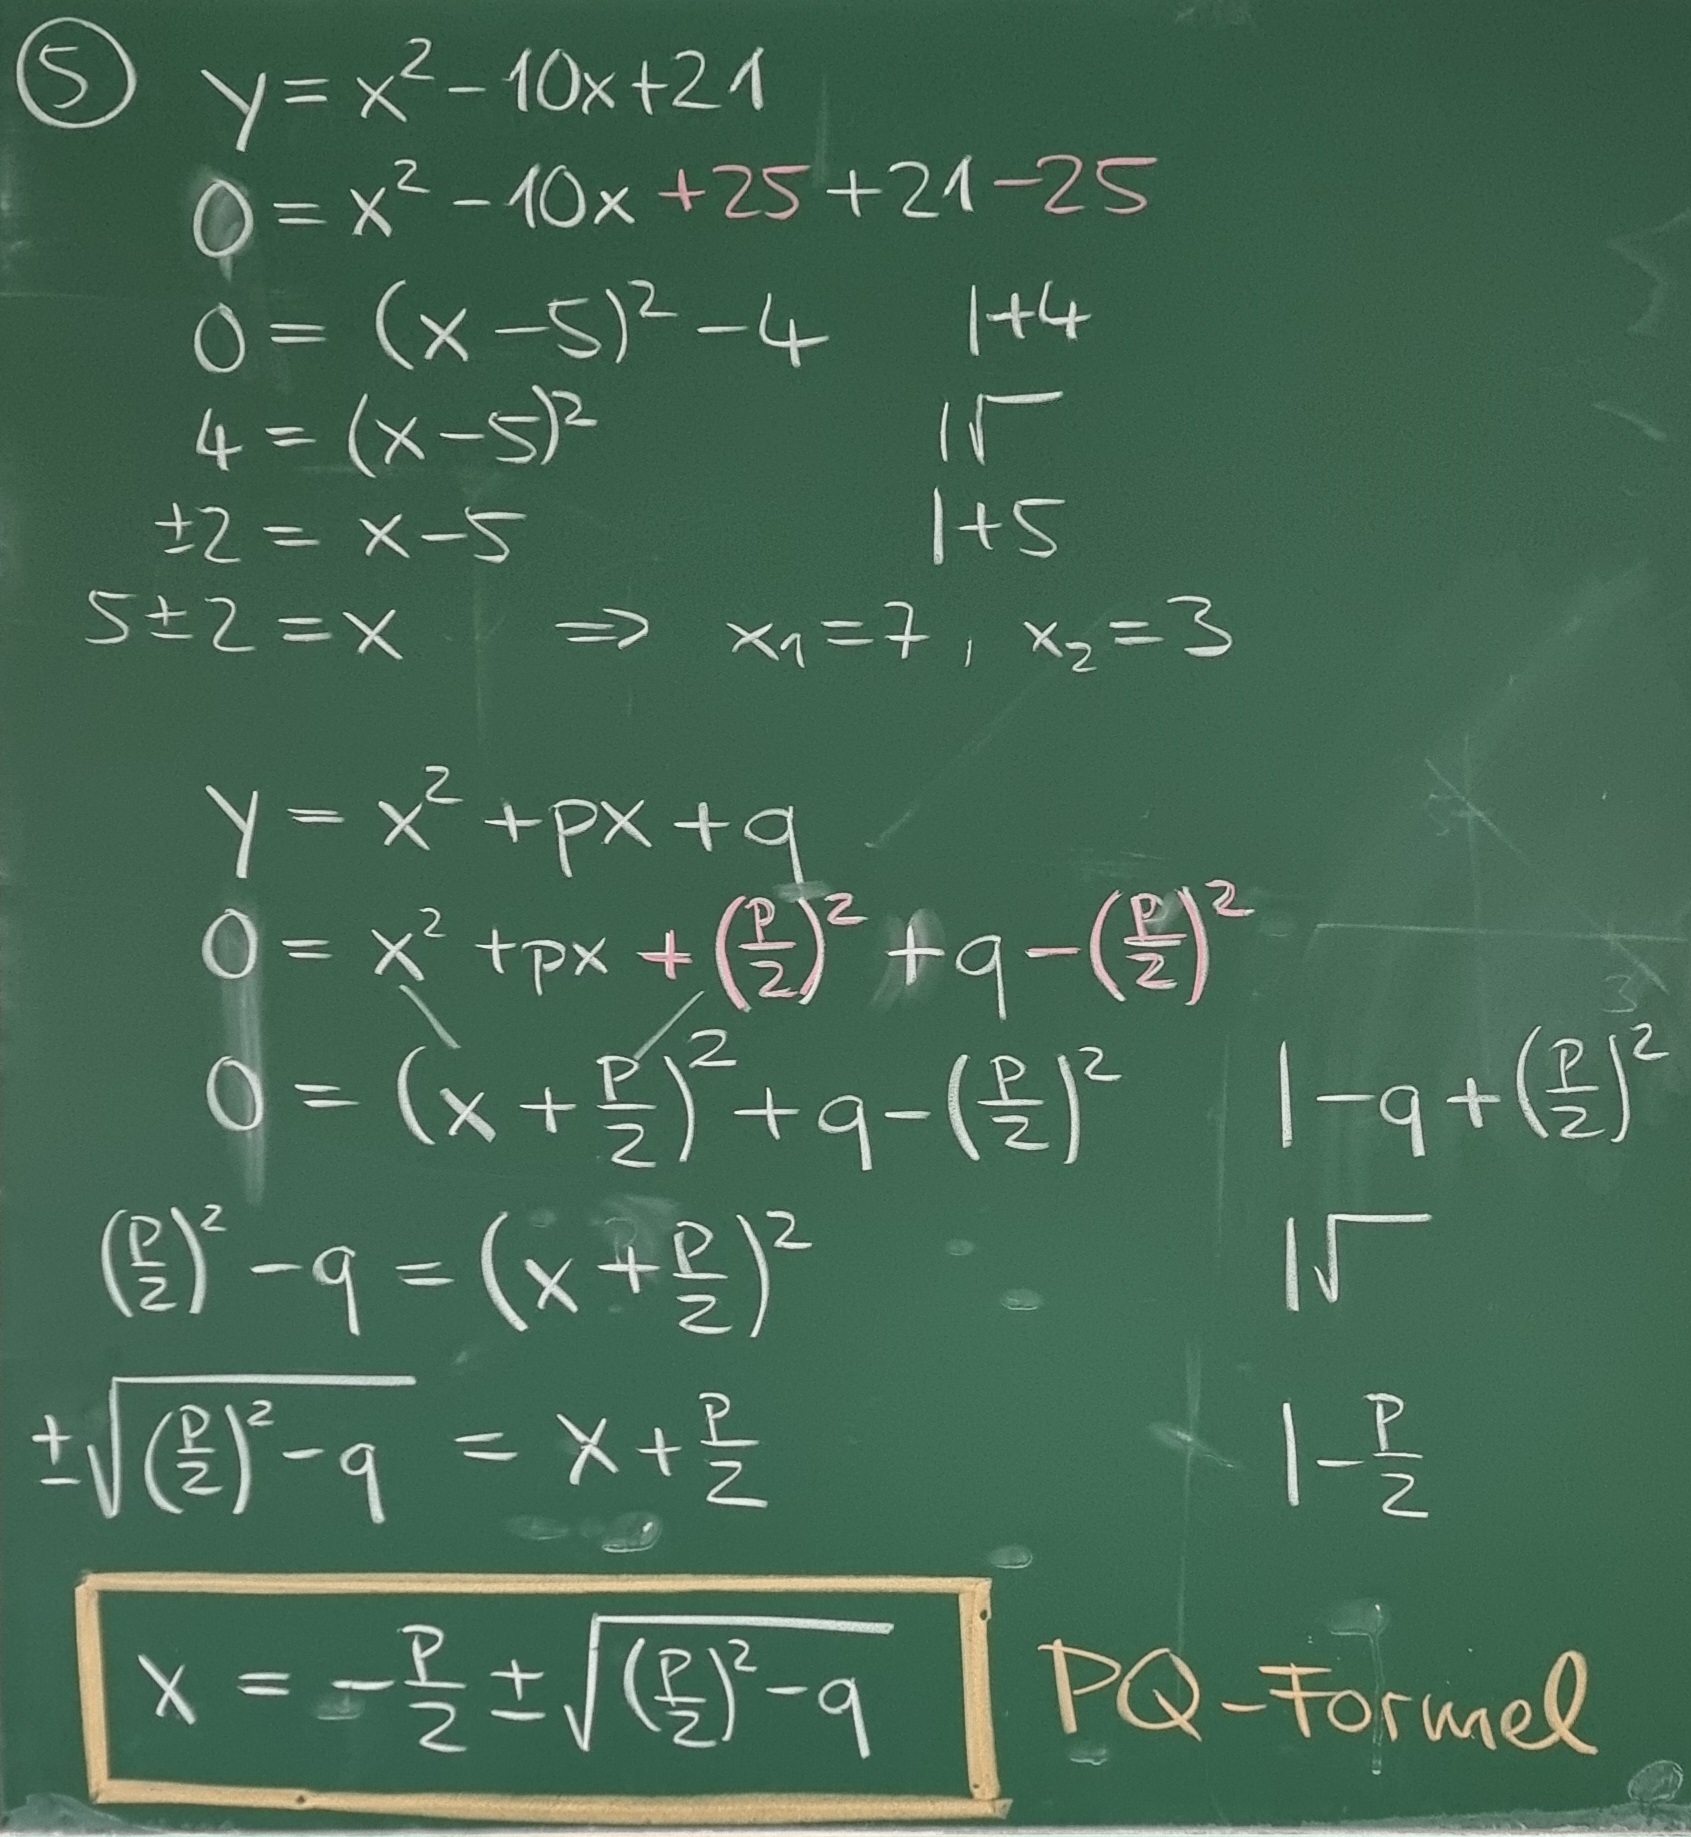 ⑤ y = x² - 10x + 21
0 = x² - 10x + 25 + 21 - 25
0 = (x - 5)² - 4 | +4
4 = (x - 5)² | √
±2 = x - 5 | +5
5 ± 2 = x ⇒ x₁ = 7, x₂ = 3
y = x² + px + q
0 = x² + px + (p/2)² + q - (p/2)²
0 = (x + p/2)² + q - (p/2)² | -q + (p/2)²
(p/2)² - q = (x + p/2)² | √
±√((p/2)² - q) = x + p/2 | - p/2
x = - p/2 ± √((p/2)² - q) PQ-Formel